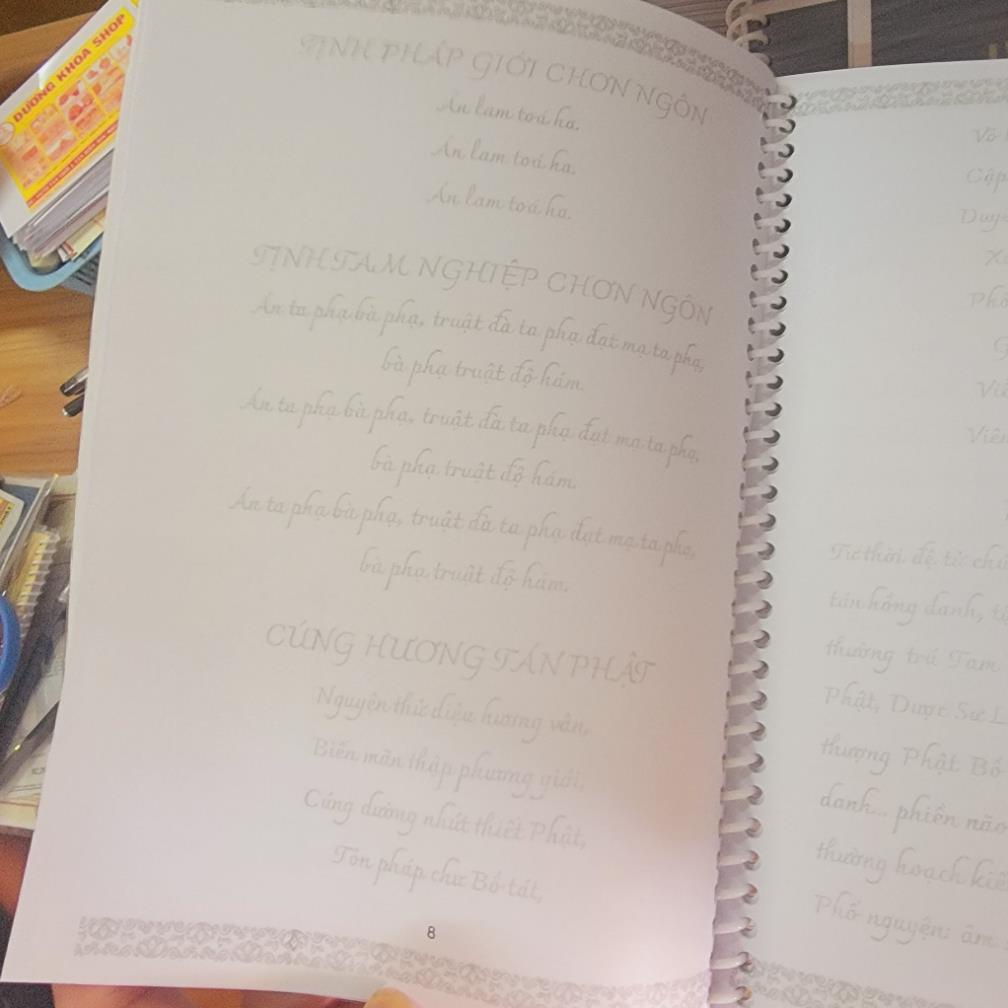 DƯƠNG KHOA SHOP
TỊNH PHÁP GIỚI CHƠN NGÔN
Án lam toá ha.
Án lam toá ha.
Án lam toá ha.
TỊNH TAM NGHIỆP CHƠN NGÔN
Án ta phạ bà phạ, truật đà ta phạ đạt mạ ta phạ,
bà phạ truật độ hám.
Án ta phạ bà phạ, truật đà ta phạ đạt mạ ta phạ,
bà phạ truật độ hám.
Án ta phạ bà phạ, truật đà ta phạ đạt mạ ta phạ,
bà phạ truật độ hám.
CÚNG HƯƠNG TÁN PHẬT
Nguyện thử diệu hương vân,
Biến mãn thập phương giới,
Cúng dường nhứt thiết Phật,
Tôn pháp chư Bồ-tát,
8
Duy
Viên
Tư thời, đệ tử chú
tán hồng danh,
thường trú Tam
Phật, Dược Sư
thượng Phật Bồ
danh... phiền não
thường hoạch
Phổ nguyện: âm